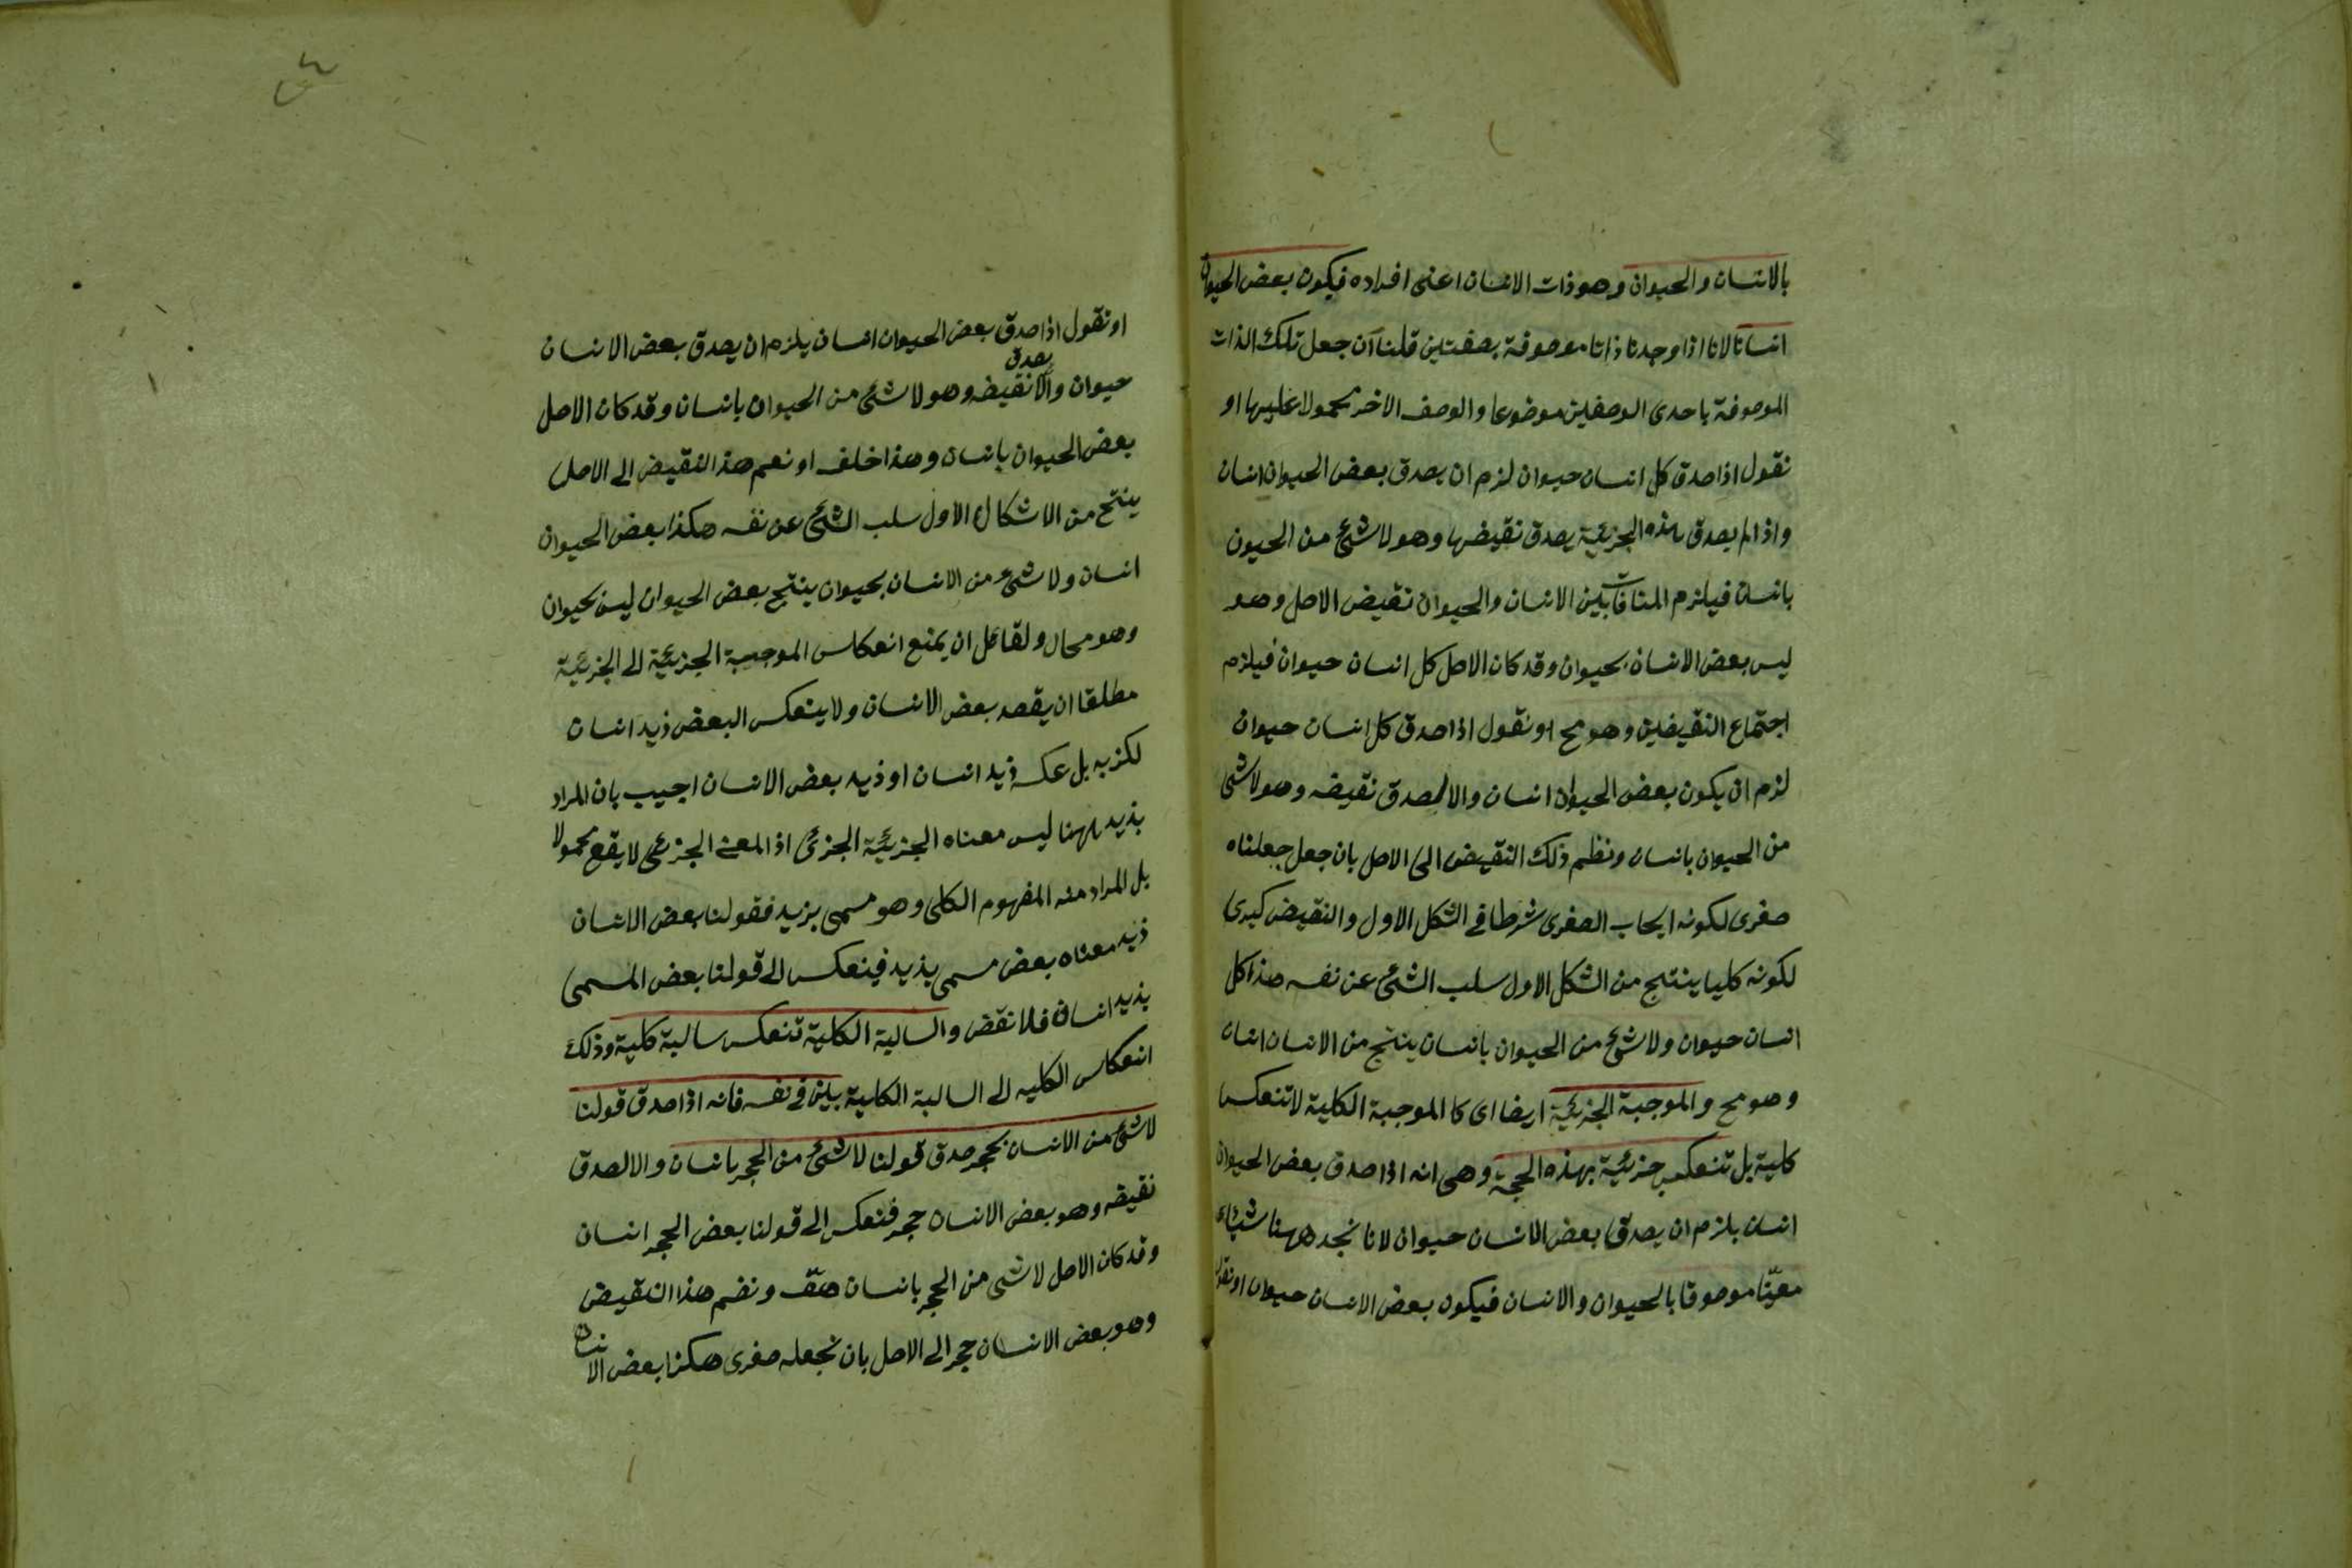 بالانسان والحيوان وهو ذات الانسان اعنى افراده فيكون بعض الحيوان
انسانا لانا اذا وجدنا ذاتا موصوفة بصفتين قلنا ان جعل تلك الذات
الموصوفة باحدى الوصفين موضوعا والوصف الاخر محمولا عليها او
نقول اذا صدق كل انسان حيوان لزم ان يصدق بعض الحيوان انسان
واذا لم يصدق هذه الجزئية يصدق نقيضها وهو لا شئ من الحيون
بانسان فيلزم المنافات بين الانسان والحيوان نقيض الاصل وهو
ليس بعض الانسان بحيوان وقد كان الاصل كل انسان حيوان فيلزم
اجتماع النقيضين وهو مح او نقول اذا صدق كل انسان حيوان
لزم ان يكون بعض الحيوان انسان والا لصدق نقيضه وهو لا شئ
من الحيوان بانسان ونظم ذلك النقيض الى الاصل بان جعل جعلناه
صغرى لكونه ايجاب الصغرى شرطا في الشكل الاول والنقيض كبرى
لكونه كليا ينتج من الشكل الاول سلب الشئ عن نفسه هذا كل
انسان حيوان ولا شئ من الحيوان بانسان ينتج من الانسان انسان
وهو مح والموجبة الجزئية ايضا اى كا الموجبة الكلية لا تنعكس
كلية بل تنعكس جزئية بهذه الحجة وهى انه اذا صدق بعض الحيوان
انسان يلزم ان يصدق بعض الانسان حيوان لانا نجد ههنا شيئاء
معيّنا موصوفا بالحيوان والانسان فيكون بعض الانسان حيوان او نقول
او نقول اذا صدق بعض الحيوان انسان يلزم ان يصدق بعض الانسان
حيوان والا يصدق نقيضه وهو لا شئ من الحيوان بانسان وقد كان الاصل
بعض الحيوان بانسان وهذا خلف او نعم هذا النقيض الى الاصل
ينتج من الاشكال الاول سلب الشئ عن نفسه هكذا بعض الحيوان
انسان ولا شئ من الانسان بحيوان ينتج بعض الحيوان ليس بحيوان
وهو محال ولقائل ان يمنع انعكاس الموجبة الجزئية الى الجزئية
مطلقا ان يقصد بعض الانسان ولا ينعكس البعض ذيد انسان
لكزبه بل عكسه ذيد انسان او ذيد بعض الانسان اجيب بان المراد
بذيد ههنا ليس معناه الجزئية الجزئ اذ المعنى الجزئى لا يقع محمولا
بل المراد منه المفهوم الكلى وهو مسمى بزيد فقولنا بعض الانسان
ذيد معناه بعض مسمى بذيد فينعكس الى قولنا بعض المسمى
بذيد انسان فلا نقض والسالبة الكلية تنعكس سالبة كلية وذلك
انعكاس الكليه الى السالبة الكلية بين في نفسه فانه اذا صدق قولنا
لا شئ من الانسان بحجر صدق قولنا لا شئ من الحجر بانسان والا لصدق
نقيضه وهو بعض الانسان حجر فنعكس الى قولنا بعض الحجر انسان
وقد كان الاصل لا شى من الحجر بانسان هف ونضم هذا النقيض
وهو بعض الانسان حجر الى الاصل بان نجعله صغرى هكزا بعض الانسان